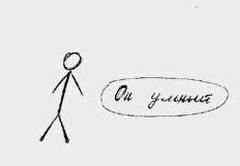 Он умный